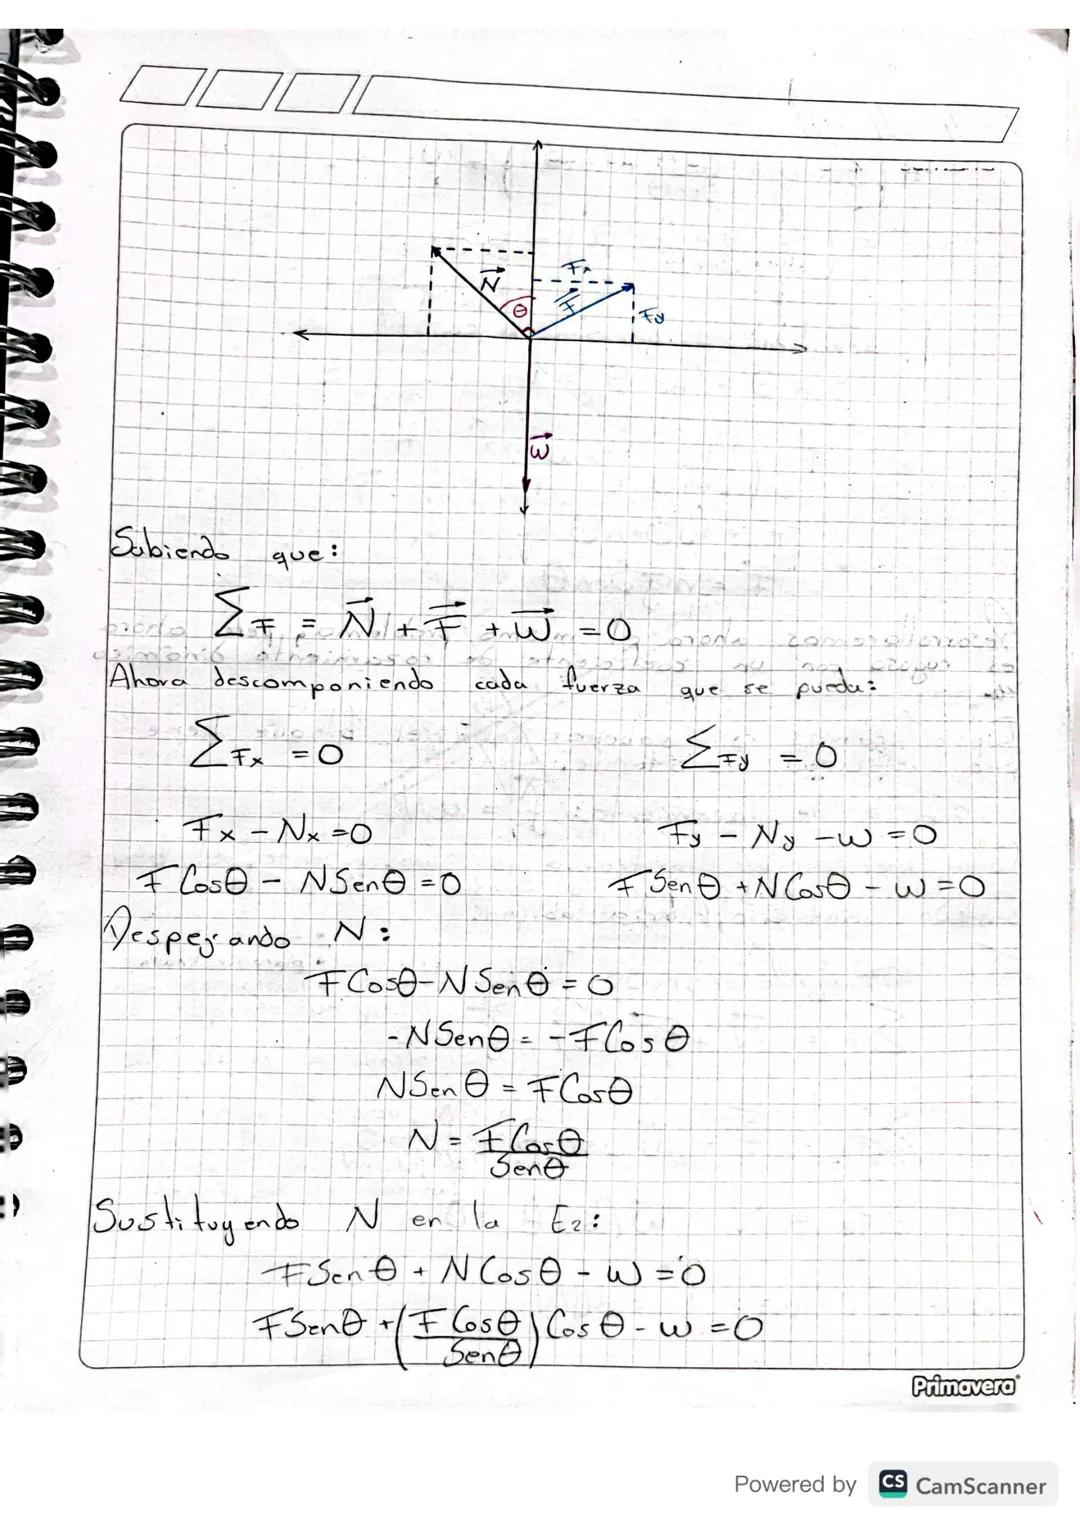 N
θ
F
Fx
Fy
W
Sabiendo que:
ΣF = N + F + W = 0
Ahora descomponiendo cada fuerza que se pueda:
ΣFx = 0 ΣFy = 0
Fx - Nx = 0 Fy - Ny - W = 0
F Cosθ - N Senθ = 0 F Senθ + N Cosθ - W = 0
Despejando N:
F Cosθ - N Senθ = 0
- N Senθ = - F Cosθ
N Senθ = F Cosθ
N = F Cosθ / Senθ
Sustituyendo N en la E2:
F Senθ + N Cosθ - W = 0
F Senθ + (F Cosθ / Senθ) Cosθ - W = 0
Primavera
Powered by CS CamScanner